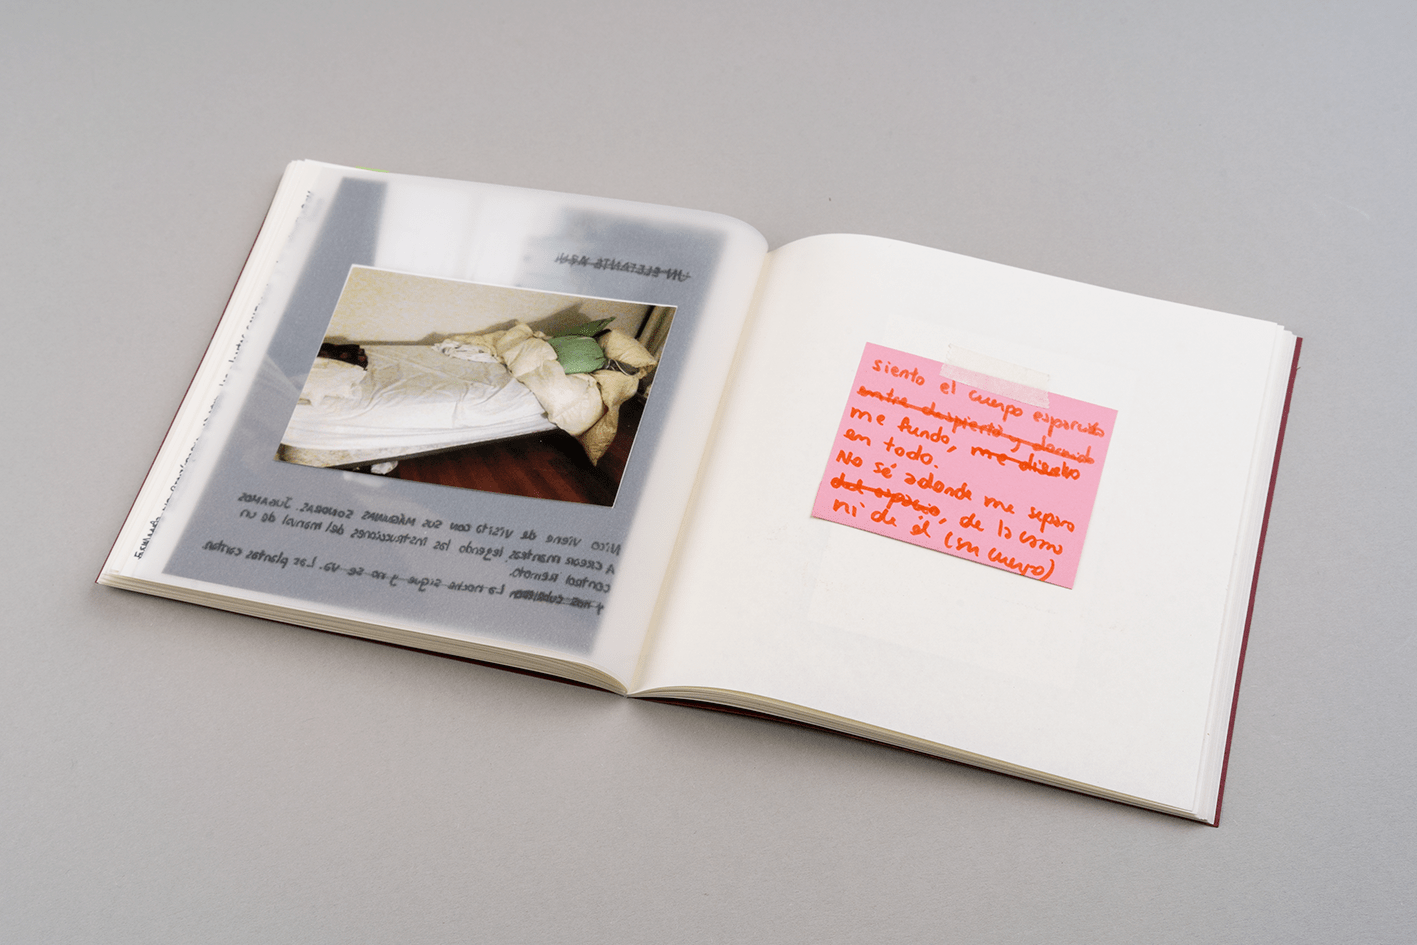 UN ELEFANTE
viene de visita con sus MÁQUINAS SONORAS. JUGAMOS
A crear mantras leyendo las instrucciones del manual de un
control remoto.
y nos La noche sigue y no se va. Las plantas cantan.
siento el cuerpo esparcido
entre despierto y dormido
me fundo, me diluyo
en todo.
No sé adonde me separo
del espacio, de la cama
ni de él (su cuerpo)